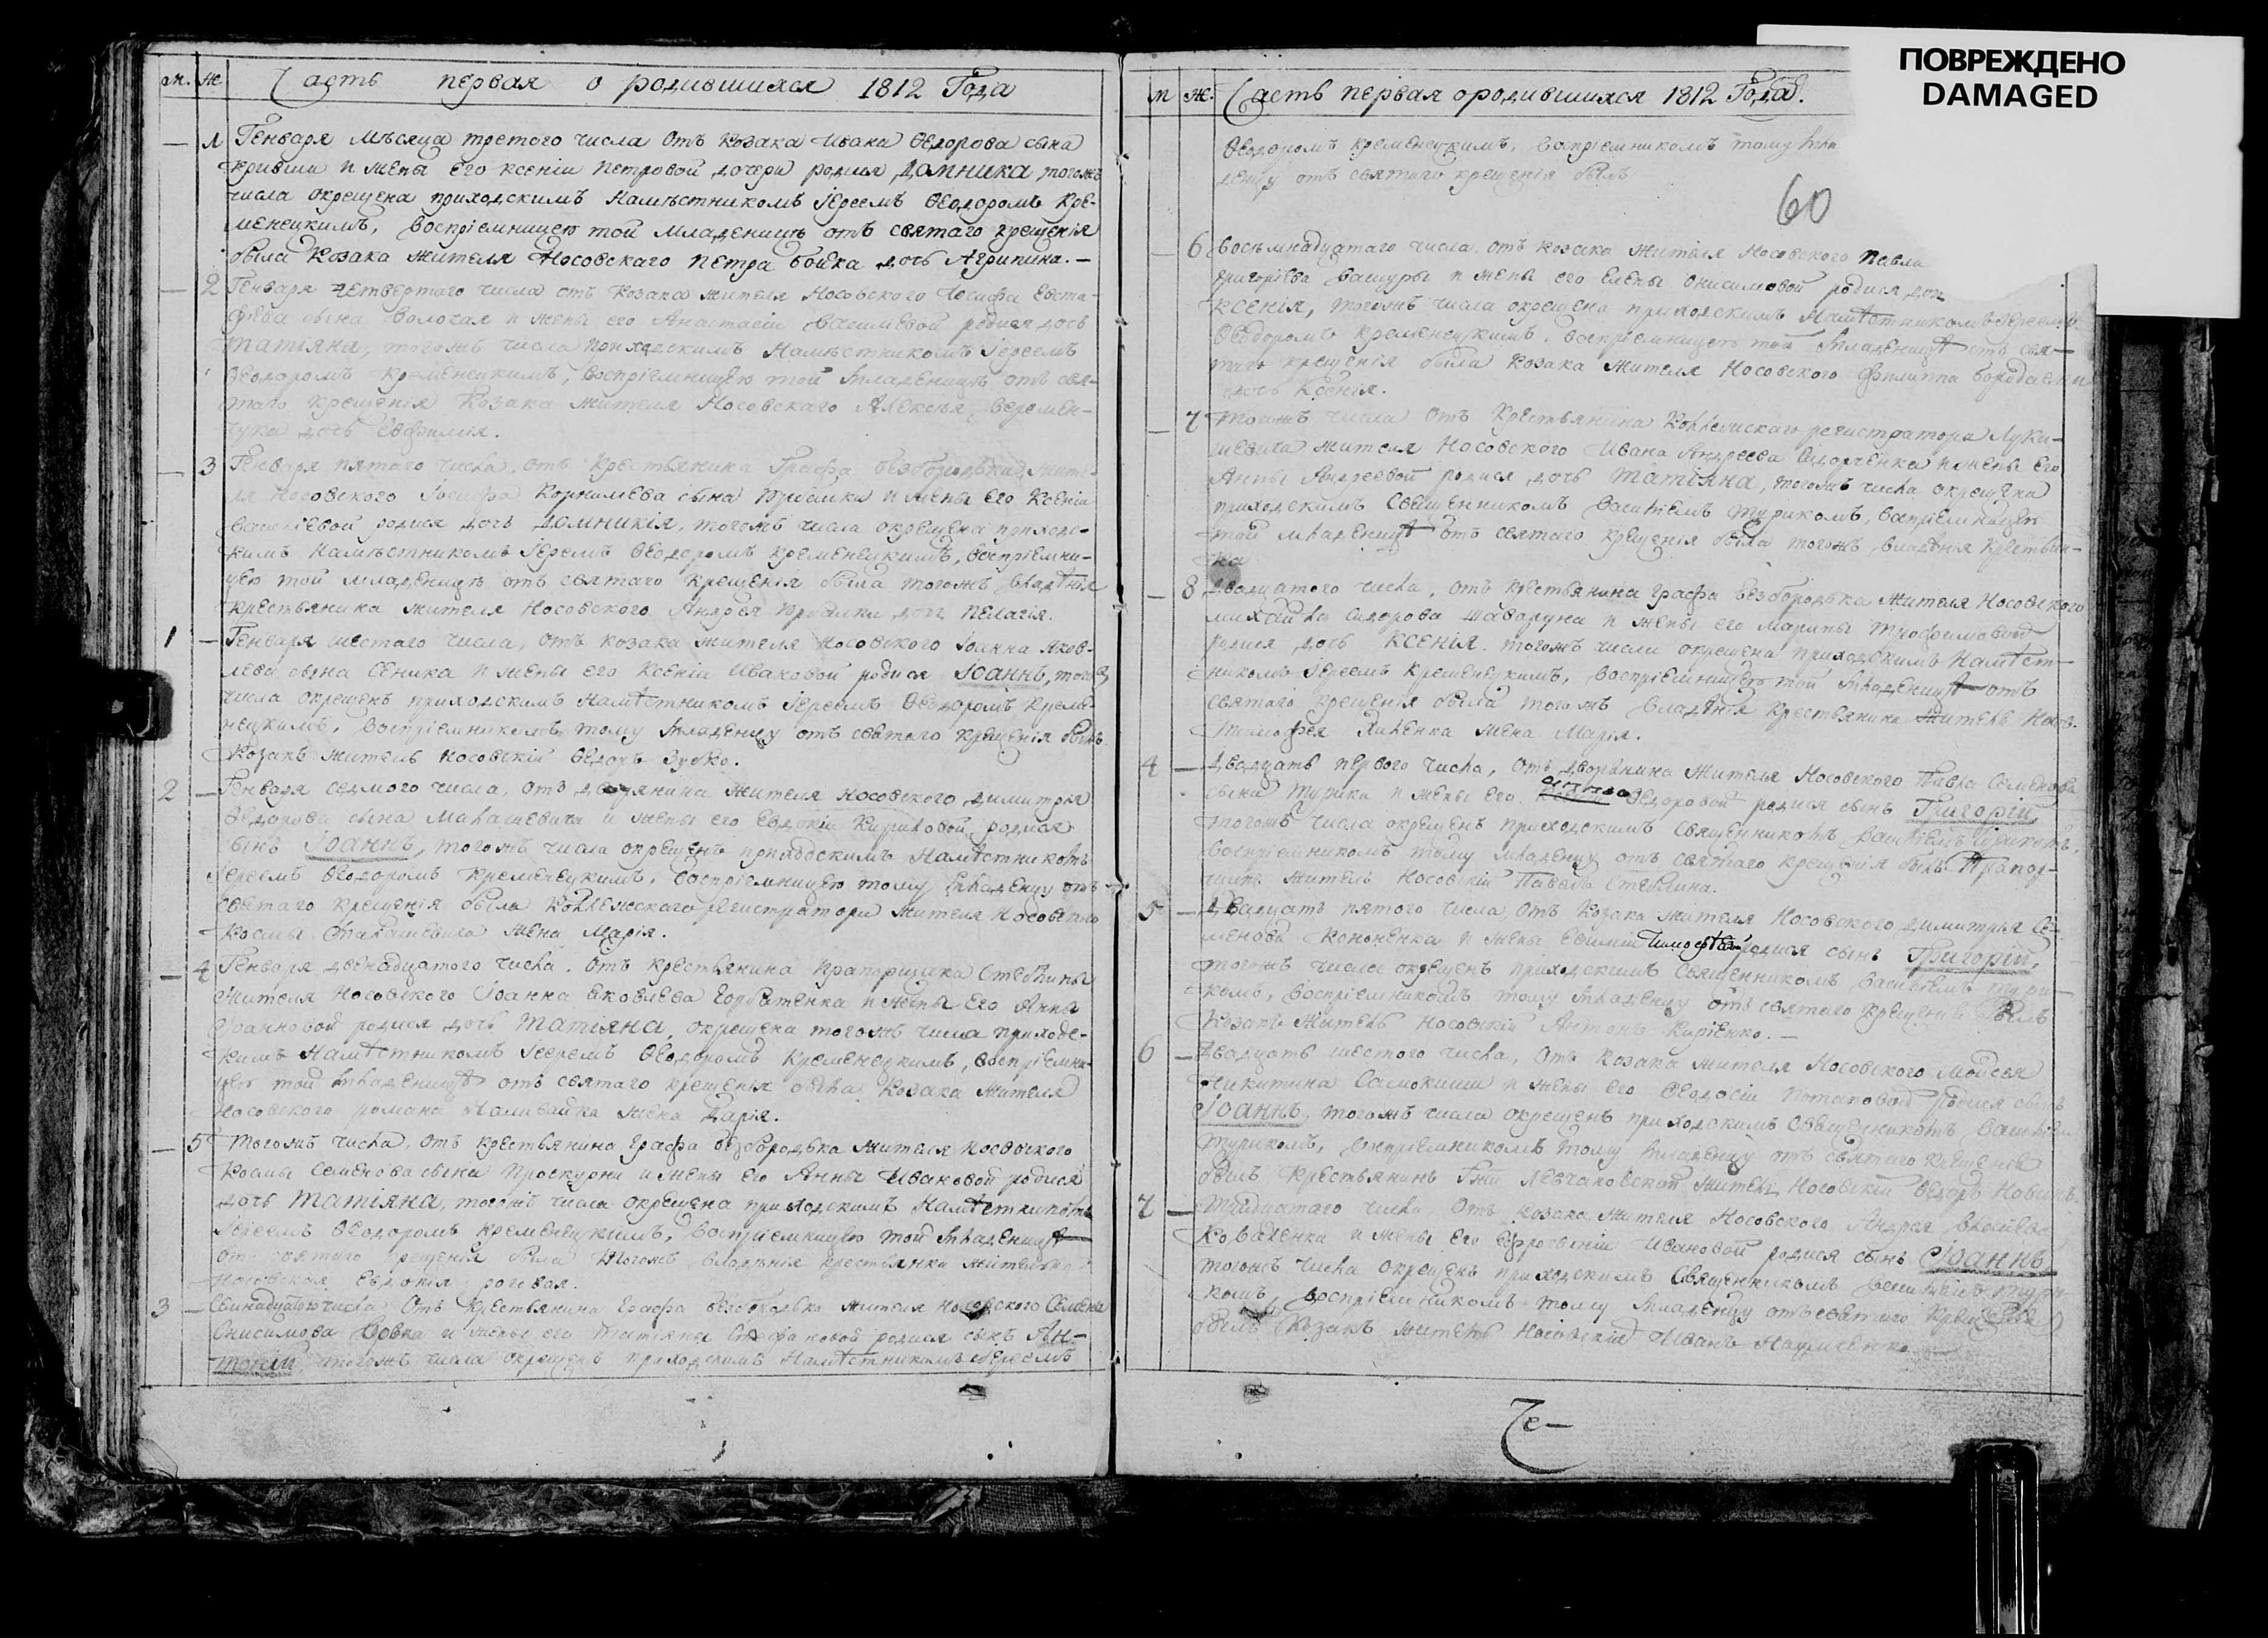 м. ж. Часть первая о родившихся 1812 Года
— 1 Генваря мѣсяца третого числа отъ козака Ивана Ѳедорова сына
и жены его Ксеніи Петровой дочери родися Домника, тогожъ
числа окрещена приходскимъ Намѣстникомъ Іереемъ Ѳеодоромъ Кре-
менецкимъ, воспріемницею той младеницѣ отъ святаго крещенія
была козака жителя Носовскаго Петра Бойка дочь Агрипина. —
— 2 Генваря четвертого числа отъ козака жителя Носовского Іосифа Евста-
сына и жены его Анастасіи родися дочь
Татіяна, тогожъ числа приходскимъ Намѣстникомъ Іереемъ
Ѳеодоромъ Кременецкимъ, воспріемницею той младеницѣ отъ свя-
таго крещенія козака жителя Носовскаго Алексѣя Веремен-
чука дочь Евфимія.
— 3 Генваря пятаго числа, отъ крестьянина Графа Безбородька жите-
ля Носовского Іосифа Корнилиева сына и жены его Ксеніи
Василіевой родися дочь Домникія, тогожъ числа окрещена приходс-
кимъ Намѣстникомъ Іереемъ Ѳеодоромъ Кременецкимъ, воспріемни-
цею той младеницѣ отъ святаго крещенія была тогожъ владѣнія
крестьянина жителя Носовского Андрея дочь Пелагія.
1 — Генваря шестаго числа, отъ козака жителя Носовского Іоанна Яков-
лева сына Сеника и жены его Ксеніи Ивановой родися Іоаннъ, тогожъ
числа окрещенъ приходскимъ Намѣстникомъ Іереемъ Ѳеодоромъ Креме-
нецкимъ, воспріемникомъ тому младенцу отъ святого крещенія былъ
козакъ житель Носовскій Ѳедоръ Зубко.
2 — Генваря седмого числа, отъ дворянина жителя Носовского Димитрія
Ѳедорова сына Макашевича и жены его Евдокіи Кириловой родися
сынъ Іоаннъ, тогожъ числа окрещенъ приходскимъ Намѣстникомъ
Іереемъ Ѳеодоромъ Кременецкимъ, воспріемницею тому младенцу отъ
святаго крещенія была Коллежского регистратора жителя Носовского
Космы Макашевича жена Марія.
— 4 Генваря двенадцатого числа. Отъ крестьянина Прапорщика
жителя Носовского Іоанна Яковлева Горбатенка и жены его Анны
Іоанновой родися дочь Татіяна, окрещена тогожъ числа приходс-
кимъ Намѣстникомъ Іереемъ Ѳеодоромъ Кременецкимъ, воспріемни-
цею той младеницѣ отъ святаго крещенія была козака жителя
Носовского Романа Наливайка жена Дарія.
— 5 Тогожъ числа, отъ крестьянина Графа Безбородька жителя Носовского
Космы Семенова сына Проскурни и жены его Анны Ивановой родися
дочь Татіяна, тогожъ числа окрещена приходскимъ Намѣстникомъ
Іереемъ Ѳеодоромъ Кременецкимъ, воспріемницею той младеницѣ
отъ святаго крещенія была тогожъ владѣнія крестьянка жителька
Носовская Евдокія
3 — числа отъ крестьянина Графа Безбородька жителя Носовского Семена
Онисимова Вовка и жены его Татіяны Стефановой родися сынъ Ан-
тоній тогожъ числа окрещенъ приходскимъ Намѣстникомъ Іереемъ
м ж. Часть первая о родившихся 1812 Года.
ПОВРЕЖДЕНО
DAMAGED
Ѳеодоромъ Кременецкимъ, воспріемникомъ тому мла
денцу отъ святаго крещенія былъ
60
— 6 Восьмнадцатаго числа отъ козака жителя Носовского Павла
Григоріева и жены его Елены Онисимовой родися доч
Ксенія, тогожъ числа окрещена приходскимъ Намѣстникомъ Іереемъ
Ѳеодоромъ Кременецкимъ, воспріемницею той младеницѣ отъ свя-
таго крещенія была козака жителя Носовского Филиппа
дочь Ксенія.
— 7 Тогожъ числа отъ крестьянина Коллежскаго регистратора Лука-
шевича жителя Носовского Ивана Андреева Сидорченка и жены его
Анны Андреевой родися дочь Татіяна, тогожъ числа окрещена
приходскимъ Священникомъ Василіемъ Туркомъ, воспріемницею
той младеницѣ отъ святаго крещенія была тогожъ владѣнія крестьян-
ка
— 8 Двадцатого числа, отъ крестьянина Графа Безбородька жителя Носовского
Михайла Сидорова и жены его Марины Трофимовой
родися дочь Ксенія тогожъ числа окрещена приходскимъ Намѣст-
никомъ Іереемъ Кременецкимъ, воспріемницею той младеницѣ отъ
святаго крещенія была тогожъ владѣнія крестьянина жителя Носов.
Тимофея жена Марія.
4 — Двадцать первого числа, отъ дворянина жителя Носовского Павла Семенова
сына Турика и жены его Ѳедоровой родися сынъ Григорій,
тогожъ числа окрещенъ приходскимъ Священникомъ Василіемъ Туркомъ,
воспріемникомъ тому младенцу отъ святаго крещенія былъ Прапор-
житель Носовскій Павелъ
5 — Двадцать пятого числа, отъ козака жителя Носовского Димитрія Се-
менова Кононенка и жены Евфиміи родися сынъ Григорій,
тогожъ числа окрещенъ приходскимъ Священникомъ Василіемъ Тури-
комъ, воспріемникомъ тому младенцу отъ святаго крещенія былъ
козакъ житель Носовскій Антонъ Киріенко. —
6 — Двадцать шестого числа, отъ козака жителя Носовского Мойсея
Никитина Самокиши и жены его Ѳеодосіи Потаповой родися сынъ
Іоаннъ, тогожъ числа окрещенъ приходскимъ Священникомъ Василіемъ
Туриком, воспріемникомъ тому младенцу отъ святаго крещенія
былъ крестьянинъ житель Носовскій Ѳедоръ
7 — Тридцатаго числа отъ козака жителя Носовского Андрея
Коваленка и жены его Ефросиніи Ивановой родися сынъ Іоаннъ,
тогожъ числа окрещенъ приходскимъ Священникомъ Василіемъ Тури-
комъ, воспріемникомъ тому младенцу отъ святаго крещенія
былъ козакъ житель Носовскій Иванъ